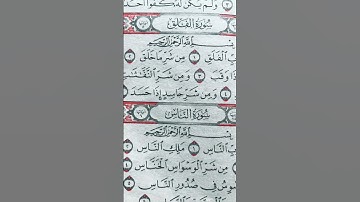 وَلَمْ يَكُن لَّهُ كُفُوًا أَحَدٌ
سُورَةُ الْفَلَقِ
بِسْمِ اللَّهِ الرَّحْمَٰنِ الرَّحِيمِ
الْفَلَقِ ١ مِن شَرِّ مَا خَلَقَ ٢
إِذَا وَقَبَ ٣ وَمِن شَرِّ النَّفَّٰثَٰتِ
٤ وَمِن شَرِّ حَاسِدٍ إِذَا حَسَدَ
سُورَةُ النَّاسِ
بِسْمِ اللَّهِ الرَّحْمَٰنِ الرَّحِيمِ
النَّاسِ ١ مَلِكِ النَّاسِ ٢
مِن شَرِّ الْوَسْوَاسِ الْخَنَّاسِ ٤
فِي صُدُورِ النَّاسِ ٥